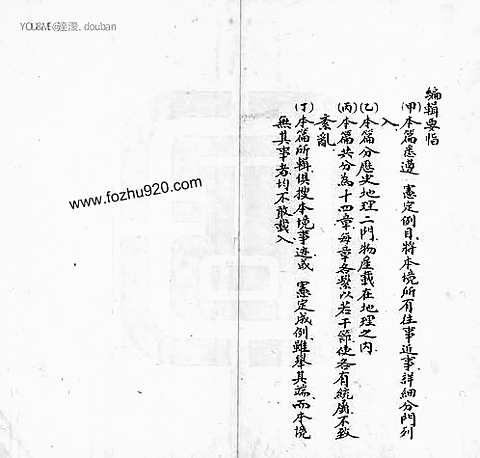 YOU&ME@瀅濙.douban
編輯要恉
(甲)本篇悉遵 憲定例目將本境所有往事近事詳細分門列
入
(乙)本篇分歷史地理二門物產載在地理之內
(丙)本篇共分為十四章每章各繫以若干節使各有統屬不致
紊亂
(丁)本篇所輯俱搜本境事迹或 憲定成例雖舉其端而本境
無其事者均不敢載入
www.fozhu920.com